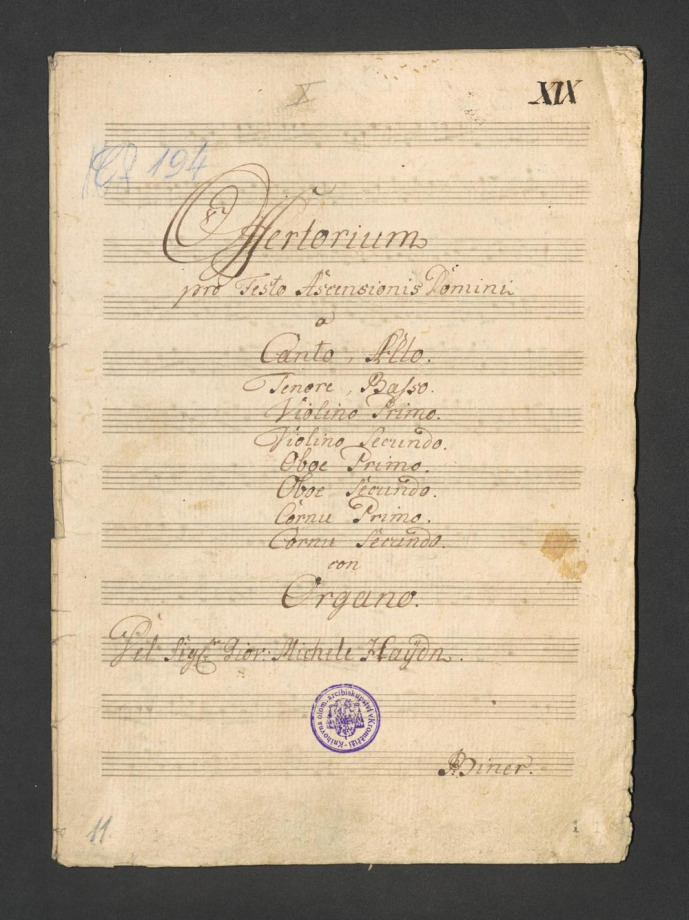 X
XIX
194
Offertorium
pro Festo Ascensionis Domini
a
Canto, Alto.
Tenore, Basso.
Violino Primo.
Violino Secundo.
Oboe Primo.
Oboe Secundo.
Cornu Primo.
Cornu Secundo.
con
Organo.
Del Sigre Giov: Michele Haydn.
Knihovna olom. arcibiskupství v Kroměříži
Biner.
11.